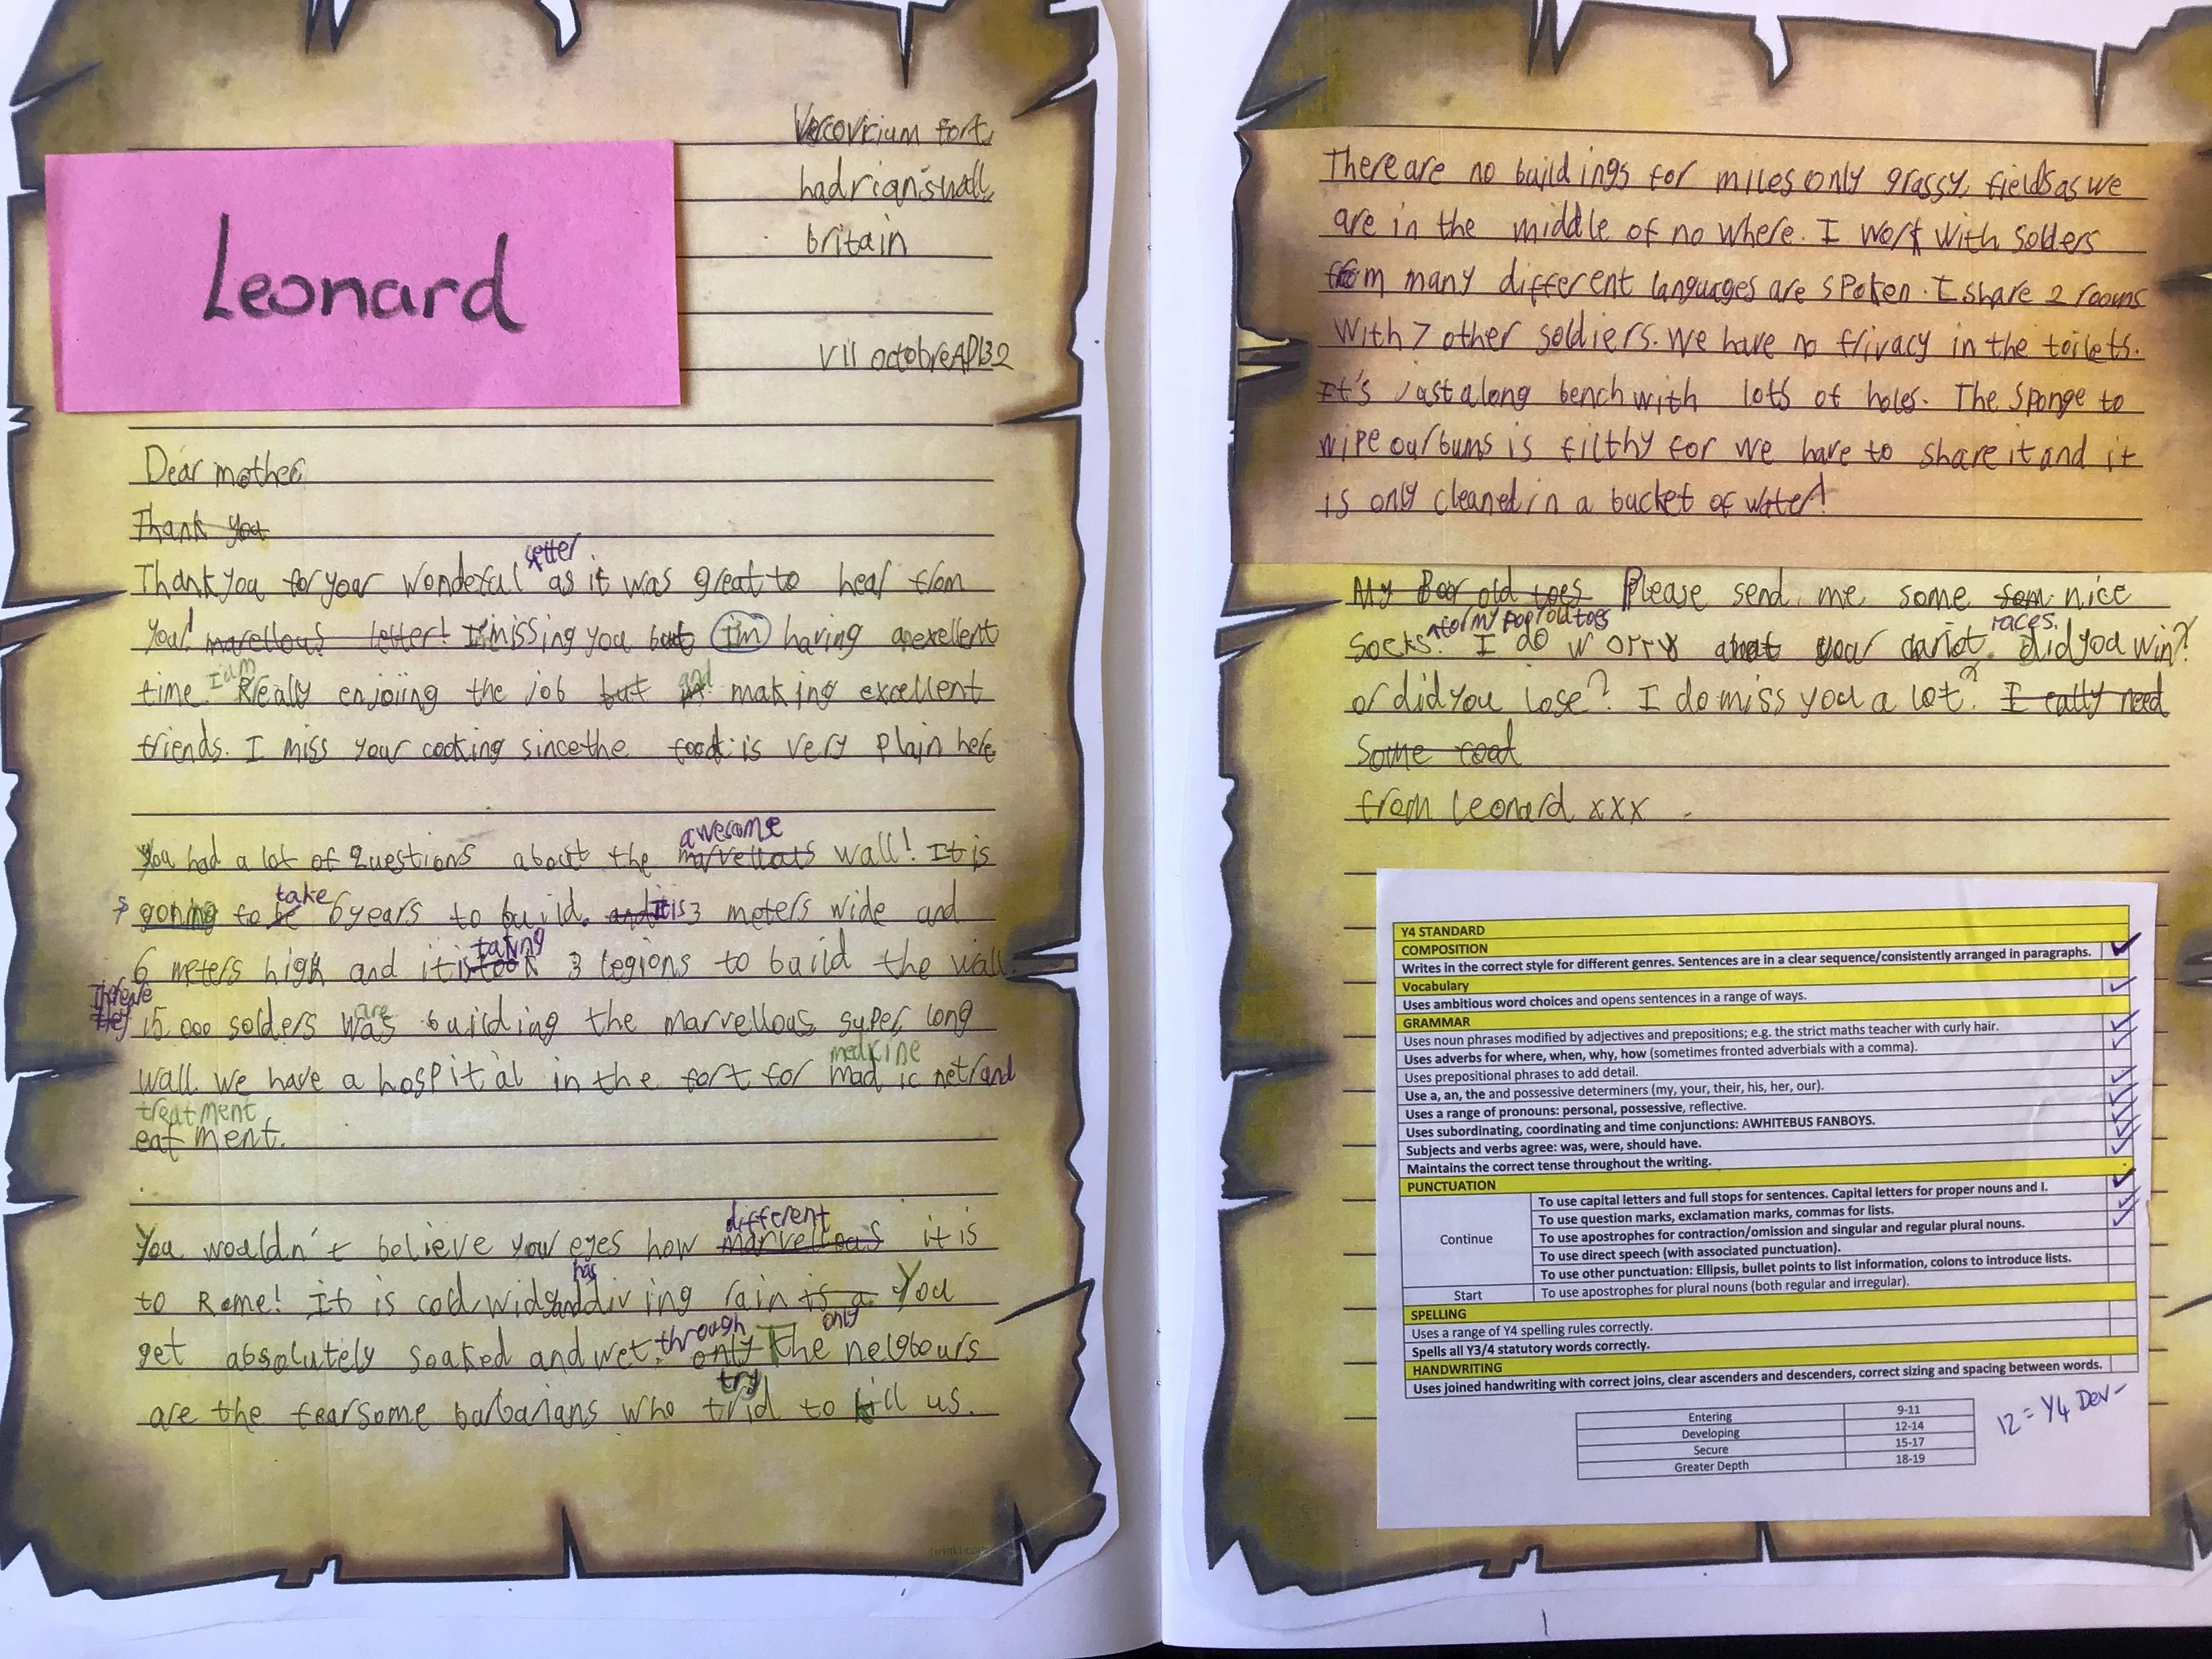 Leonard
Vercovicium fort,
hadrian's wall,
britain
VII octobre AD132
Dear mother,
Thank you
letter
Thank you for your wonderful as it was great to hear from
you! marellous letter! I'm missing you but I'm having a exellent
I am and
time. Really enjoiing the job but making excellent
friends. I miss your cooking since the food is very plain here
awesome
You had a lot of questions about the marvellous wall! It is
take
going to be 6 years to build. and It is 3 meters wide and
taking
6 meters high and it is took 3 legions to build the wall
There are
they 15,000 solders was building the marvellous super long
are
medicine
wall. We have a hospital in the fort for mad ic net/and
treatment
eatment.
different
You wouldn't believe your eyes how marvellous it is
has
to Rome! It is cold, wid and driving rain is a You
through only
get absolutely soaked and wet. only The neigbours
try
are the fearsome barbarians who trid to kill us.
There are no buildings for miles only grassy fields as we
are in the middle of no where. I work with solders
from many different languages are spoken. I share 2 rooms
with 7 other soldiers. We have no privacy in the toilets.
It's just a long bench with lots of holes. The sponge to
wipe our bums is filthy for we have to share it and it
is only cleaned in a bucket of water!
My Boor old toes Please send me some som nice
for my poor old toes races.
socks. I do worry about your cariot. did you win?
or did you lose? I do miss you a lot? I eally need
Some
from leonard xxx
Y4 STANDARD
COMPOSITION
Writes in the correct style for different genres. Sentences are in a clear sequence/consistently arranged in paragraphs.
Vocabulary
Uses ambitious word choices and opens sentences in a range of ways.
GRAMMAR
Uses noun phrases modified by adjectives and prepositions; e.g. the strict maths teacher with curly hair.
Uses adverbs for where, when, why, how (sometimes fronted adverbials with a comma).
Uses prepositional phrases to add detail.
Use a, an, the and possessive determiners (my, your, their, his, her, our).
Uses a range of pronouns: personal, possessive, reflective.
Uses subordinating, coordinating and time conjunctions: AWHITEBUS FANBOYS.
Subjects and verbs agree: was, were, should have.
Maintains the correct tense throughout the writing.
PUNCTUATION
Continue
To use capital letters and full stops for sentences. Capital letters for proper nouns and I.
To use question marks, exclamation marks, commas for lists.
To use apostrophes for contraction/omission and singular and regular plural nouns.
To use direct speech (with associated punctuation).
To use other punctuation: Ellipsis, bullet points to list information, colons to introduce lists.
Start To use apostrophes for plural nouns (both regular and irregular).
SPELLING
Uses a range of Y4 spelling rules correctly.
Spells all Y3/4 statutory words correctly.
HANDWRITING
Uses joined handwriting with correct joins, clear ascenders and descenders, correct sizing and spacing between words.
Entering 9-11
Developing 12-14
Secure 15-17
Greater Depth 18-19
12 = Y4 Dev-